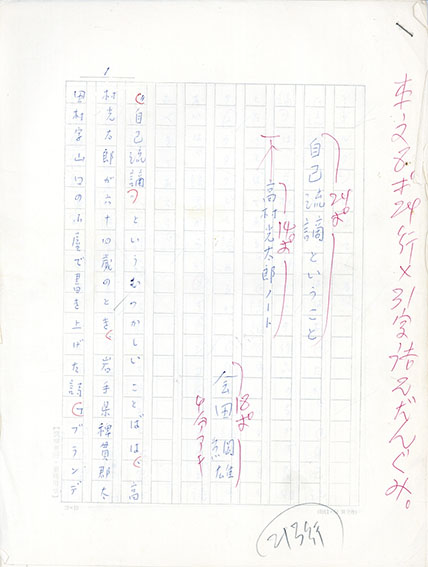 本文8ポ24行×31字詰2だんぐみ。
24ポ
自己流謫ということ
14ポ
高村光太郎ノート
18ポ
会田綱雄
4分アキ
1
「自己流謫」というむつかしいことばは、高
村光太郎が六十四歳のとき、岩手県稗貫郡太
田村字山口の小屋で書き上げた詩「ブランデ
213行